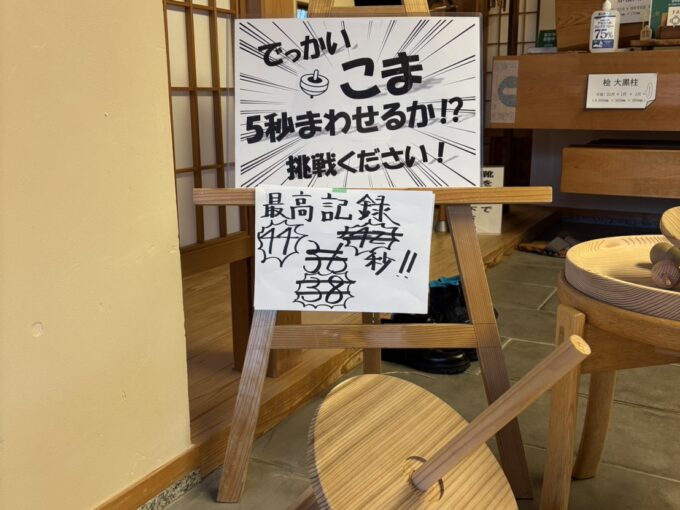 でっかい
こま
5秒まわせるか!?
挑戦ください!
最高記録
44 42
36 秒!!
38
桧 大黒柱
75%
靴を